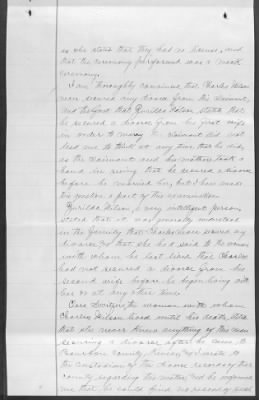 as she stated that they had no license, and
that the ceremony performed was a mock
ceremony.
I am thoroughly convinced that Charles Wilson
never secured any divorce from this claimant,
and the fact that Gurilda Wilson stated that
he secured a divorce from his first wife
in order to marry the claimant did not
lead me to think at any time that he did,
as the claimant and his mother took a
hand in seeing that he secured a divorce
before he married her, but I have made
the question a part of this examination.
Gurilda Wilson, a very intelligent person,
stated that it was generally understood
in the family that Charles never secured any
divorce and that she had said to the woman
with whom he last lived that Charles
had not secured a divorce from his
second wife before he began living with
her or at any other time.
Cora, the woman with whom
Charles Wilson lived until his death, states
that she never knew anything of this man
securing a divorce after he came to
Bourbon County, Kansas, and I wrote to
the custodian of the divorce records of that
county regarding this matter, and he informed
me that he could find no record of such